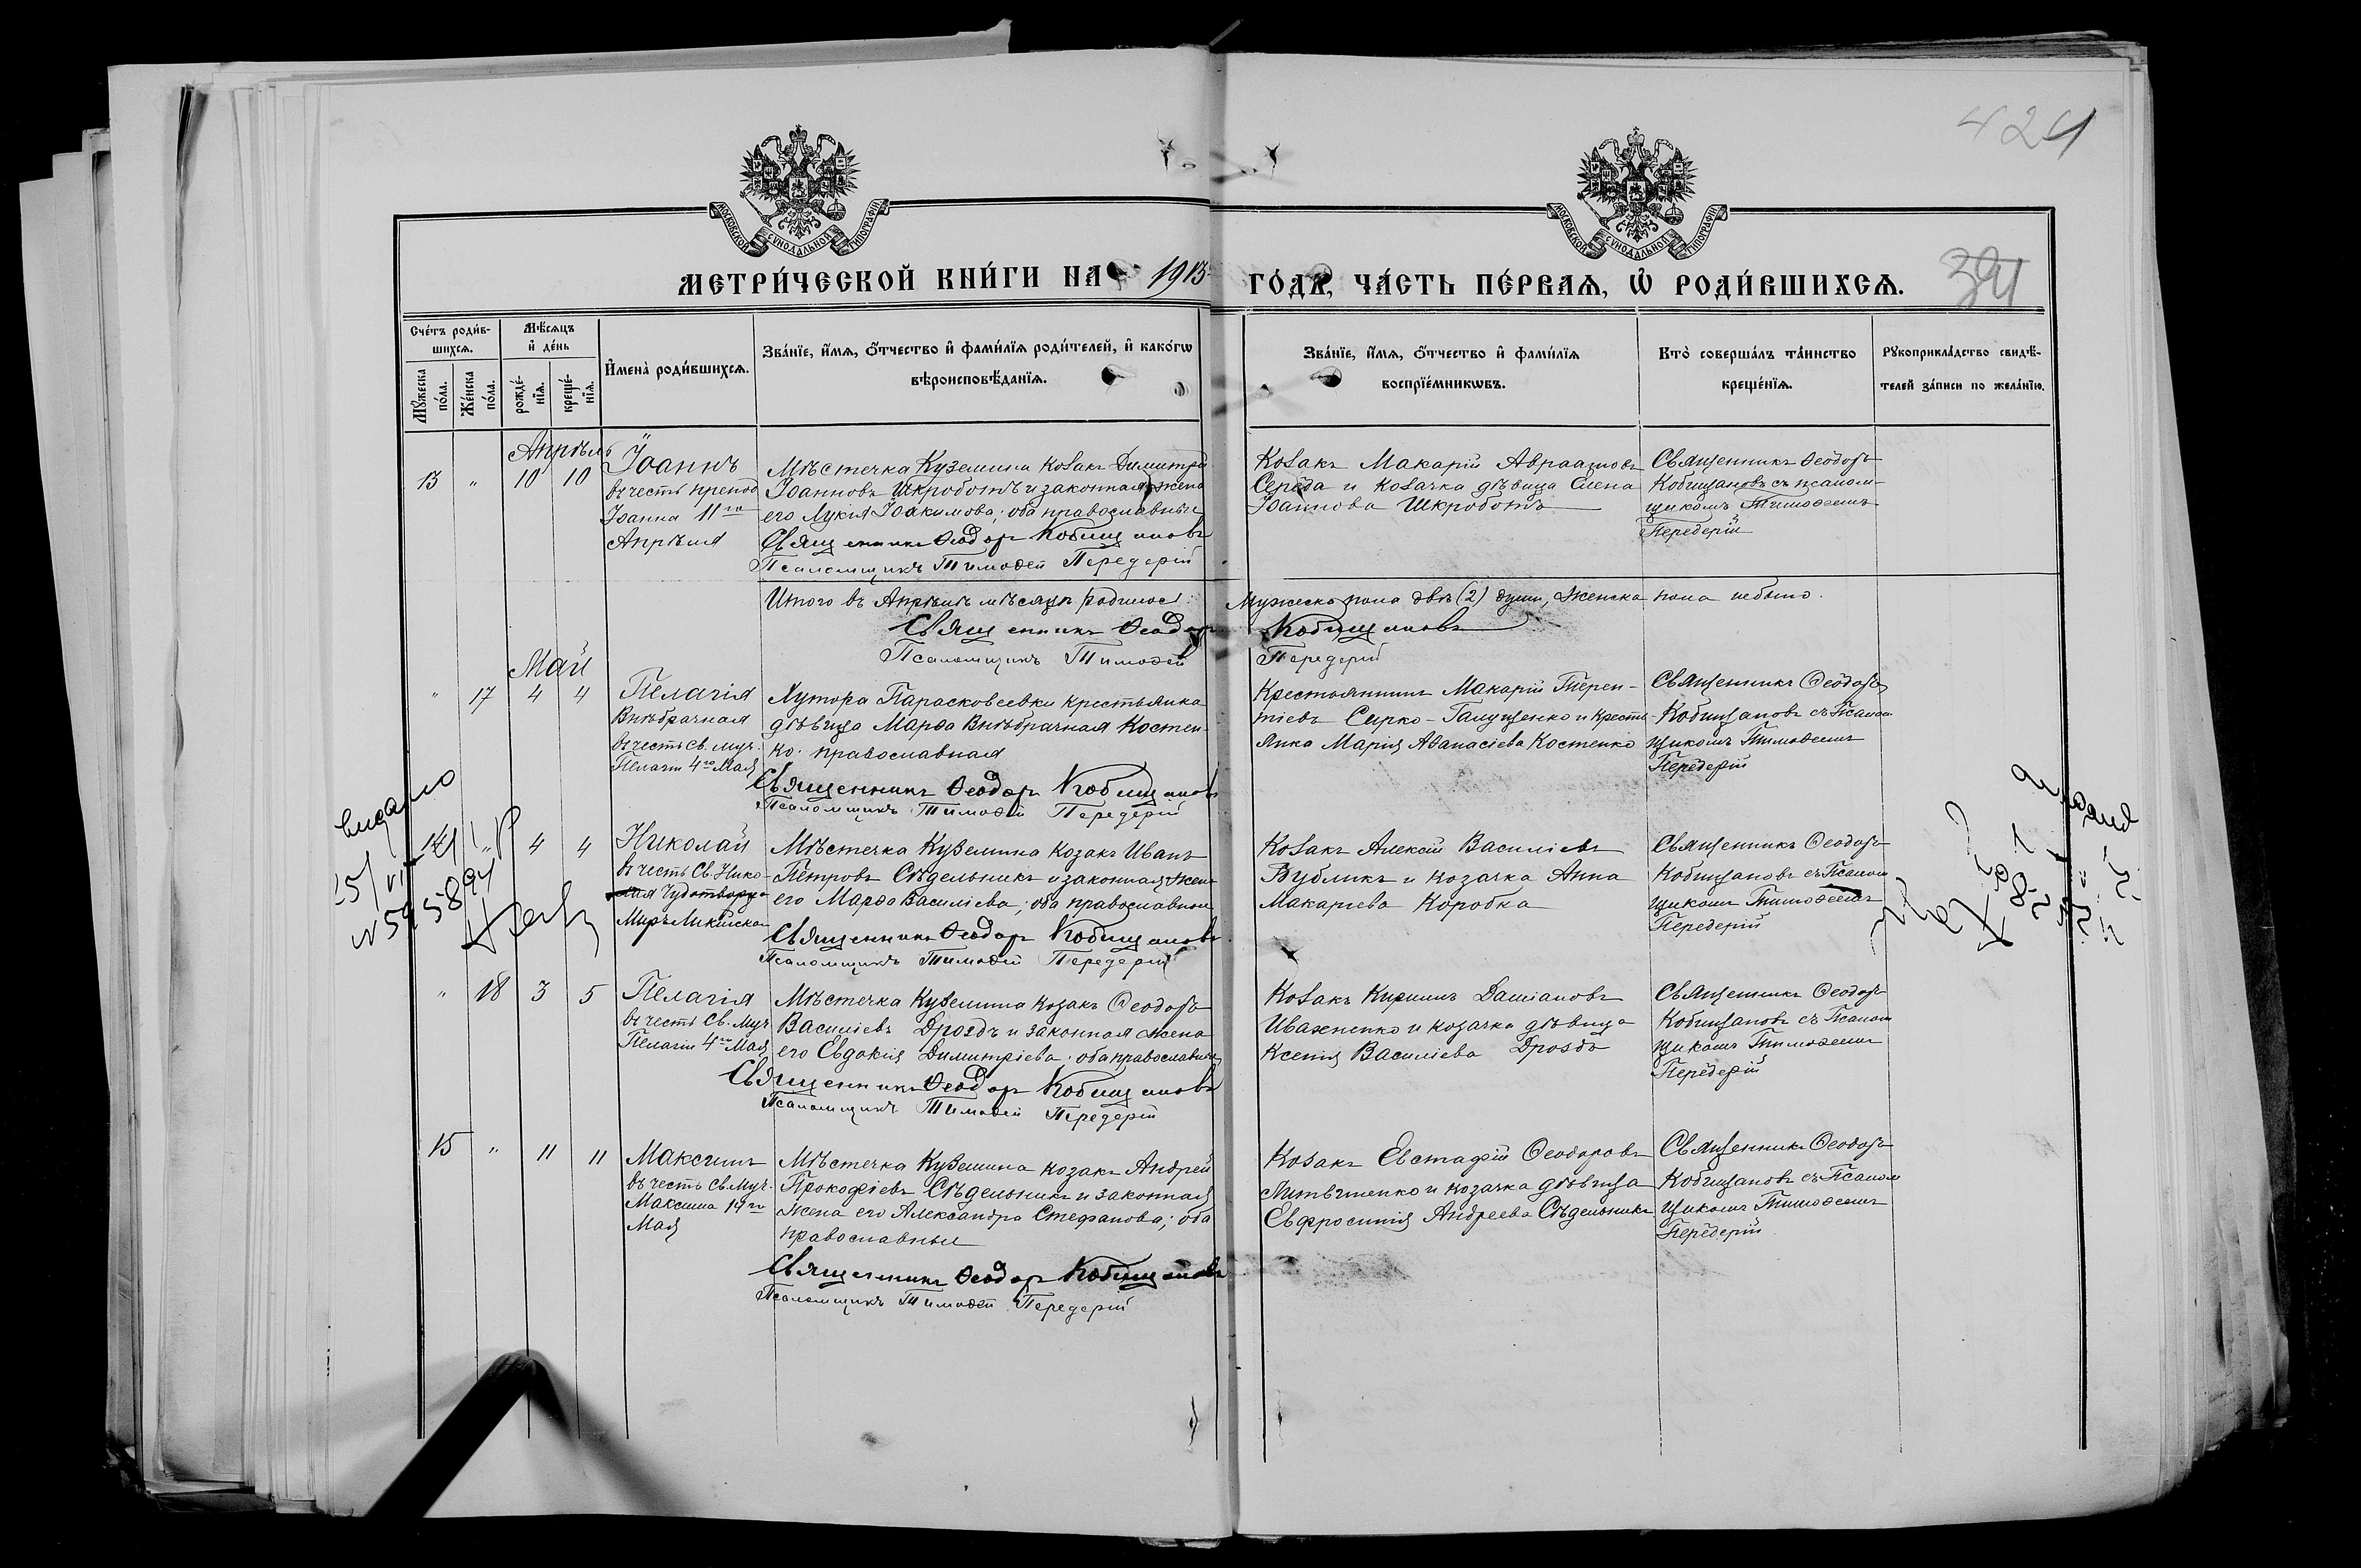 424
МОСКОВСКОЙ СѴНОДАЛЬНОЙ ТИПОГРАФІИ
МОСКОВСКОЙ СѴНОДАЛЬНОЙ ТИПОГРАФІИ
МЕТРИ́ЧЕСКОЙ КНИ́ГИ НА 1913 ГО́ДЪ, ЧА́СТЬ ПЕ́РВАЯ, Ѡ РОДИ́ВШИХСЯ.
394
Сче́тъ роди́в-
шихся.
Мѣ́сяцъ
и де́нь
Мꙋ́жеска
по́ла.
Же́нска
по́ла.
рожде́-
нїя.
креще́-
нїя.
И҆мена̀ роди́вшихся.
Зва́нїе, и҆́мя, ѻ҆́тчество и҆ фами́лїя роди́телей, и҆ како́гѡ
вѣроисповѣ́данїя.
Зва́нїе, и҆́мя, ѻ҆́тчество и҆ фами́лїя
воспрїе́мникѡвъ.
Кто̀ соверша́лъ та́инство
креще́нїя.
Рꙋкоприкла́дство свидѣ́-
телей за́писи по жела́нїю.
Апрѣль
13 " 10 10
Іоаннъ
въ честь препод
Іоанна 11го
Апрѣля
Мѣстечка Куземина козакъ Димитрій
Іоанновъ Шкроботъ и законная жена
его Лукія Іоакимова; оба православные
Священникъ Ѳеодоръ Кобищановъ
Псаломщикъ Тимоѳей Передерій
Козакъ Макарій Авраамовъ
Середа и козачка дѣвица Елена
Іоаннова Шкроботъ
Священникъ Ѳеодоръ
Кобищановъ съ псалом-
щикомъ Тимоѳеемъ
Передерій
Итого въ Апрѣлѣ мѣсяцѣ родилось: Мужеска пола двѣ (2) души, женска пола небыло.
Священникъ Ѳеодоръ Кобищановъ
Псаломщикъ Тимоѳей Передерій
Май
" 17 4 4
Пелагія
Внѣбрачная
въ честь Св. муч.
Пелагіи 4го Мая
Хутора Парасковеевки крестьянка
дѣвица Марѳа Внѣбрачная Костен-
ко. православная
Священникъ Ѳеодоръ Кобищановъ
Псаломщикъ Тимоѳей Передерій
Крестьянинъ Макарій Терен-
тіевъ Сирко-Галущенко и кресть-
янка Марія Аѳанасіева Костенко
Священникъ Ѳеодоръ
Кобищановъ съ Псалом
щикомъ Тимоѳеемъ
Передерій
видано
14 " 4 4
Николай
въ честь Св. Нико-
лая Чудотворца
Мѵръ Ликійскаго
Мѣстечка Куземина козакъ Иванъ
Петровъ Сѣдельникъ и законная жена
его Марѳа Василіева; оба православные
Священникъ Ѳеодоръ Кобищановъ
Псаломщикъ Тимоѳей Передерій
Козакъ Алексій Василіевъ
Бубликъ и козачка Анна
Макаріева Коробка
Священникъ Ѳеодоръ
Кобищановъ съ Псалом
щикомъ Тимоѳеемъ
Передерій
" 18 3 5
Пелагія
въ честь Св. Муч
Пелагіи 4го Мая
Мѣстечка Куземина козакъ Ѳеодоръ
Василіевъ Дроздъ и законная жена
его Евдокія Димитріева. оба православные
Священникъ Ѳеодоръ Кобищановъ
Псаломщикъ Тимоѳей Передерій
Козакъ Кириллъ Даміановъ
Ивахненко и козачка дѣвица
Ксенія Василіева Дроздъ
Священникъ Ѳеодоръ
Кобищановъ съ Псалом
щикомъ Тимоѳеемъ
Передерій
15 " 11 11
Максимъ
въ честь Св. Муч.
Максима 14го
Мая
Мѣстечка Куземина козакъ Андрей
Прокофіевъ Сѣдельникъ и законная
жена его Александра Стефанова; оба
православные
Священникъ Ѳеодоръ Кобищановъ
Псаломщикъ Тимоѳей Передерій
Козакъ Евстафій Ѳеодоровъ
Литвиненко и козачка дѣвица
Евфросинія Андреева Сѣдельникъ
Священникъ Ѳеодоръ
Кобищановъ съ Псалом
щикомъ Тимоѳеемъ
Передерій